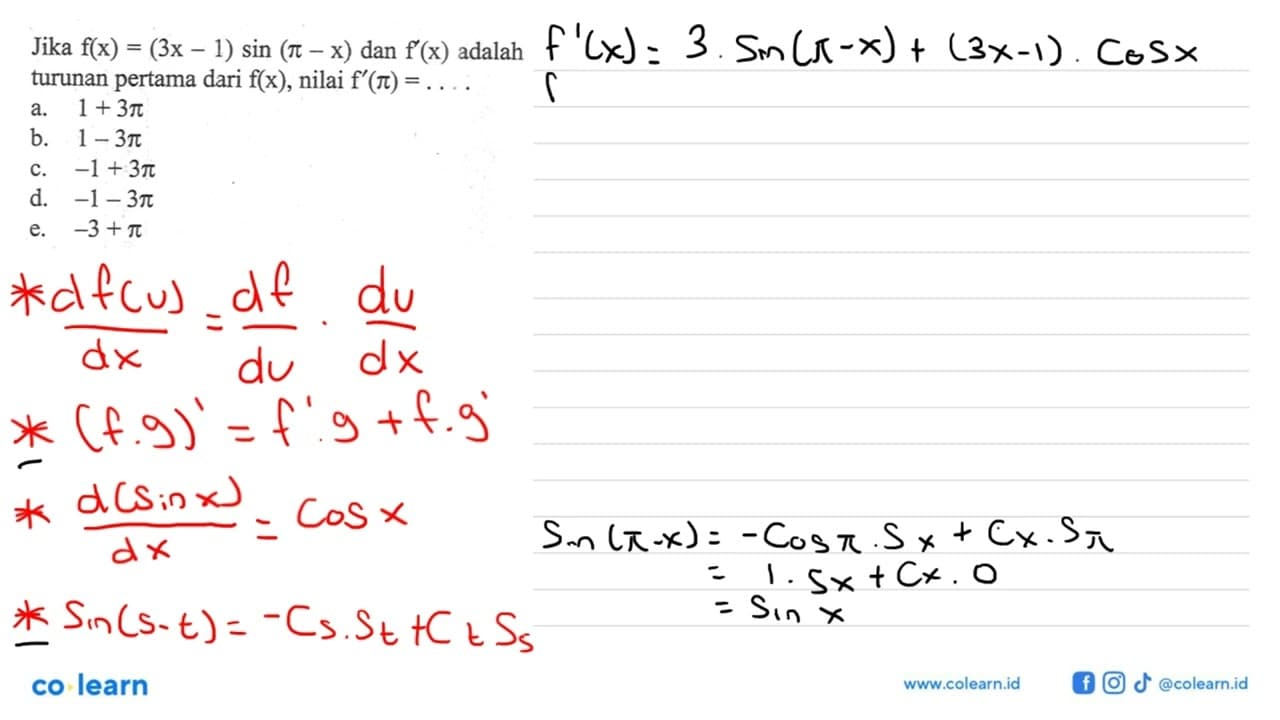 Jika f(x) = (3x – 1) sin (π – x) dan f'(x) adalah
turunan pertama dari f(x), nilai f'(π) = . . . .
a. 1 + 3π
b. 1 – 3π
c. –1 + 3π
d. –1 – 3π
e. –3 + π
* df(u)/dx = df/du . du/dx
* (f.g)' = f'.g + f.g'
* d(sin x)/dx = cos x
* Sin(s-t) = -Cs.St + Ct Ss
f'(x) = 3 . Sin(π-x) + (3x-1) . Cos x
f
Sin(π-x) = -Cosπ . Sx + Cx . Sπ
= 1. Sx + Cx . 0
= Sin x
co learn
www.colearn.id
@colearn.id